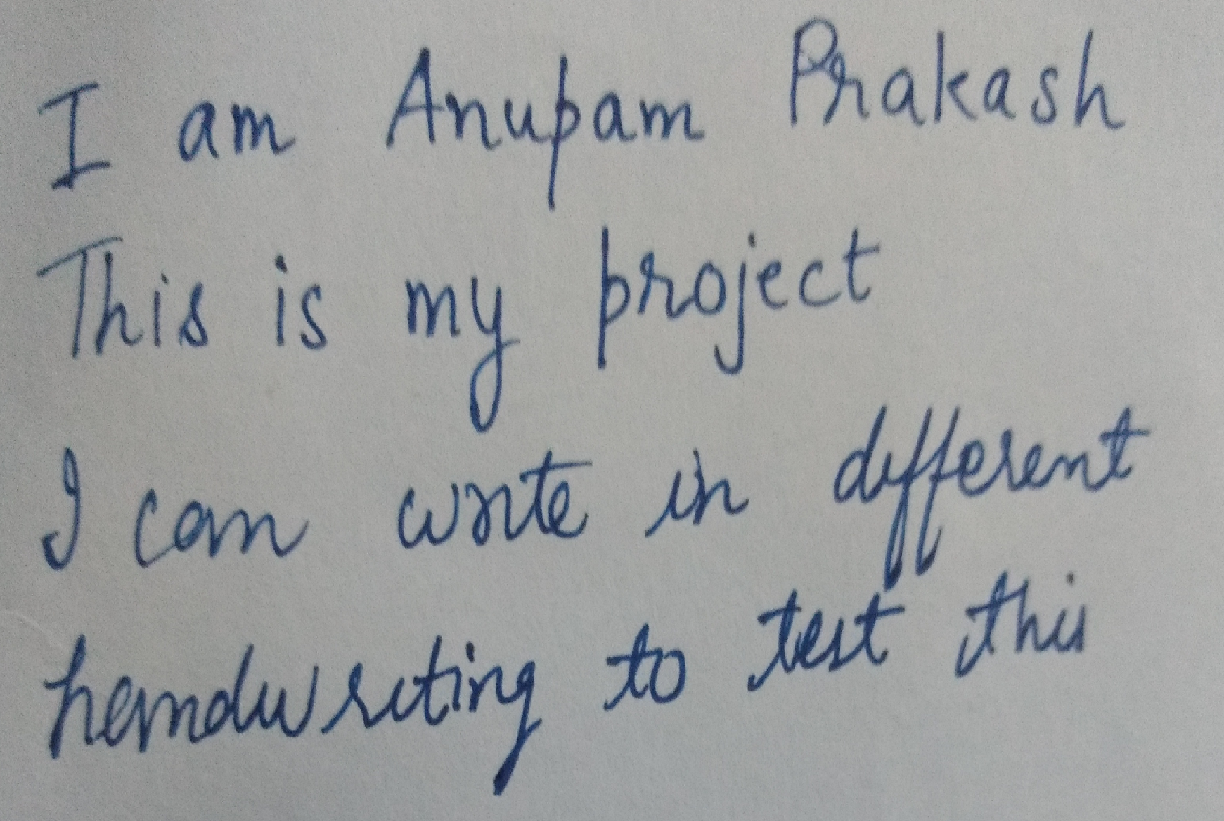 I am Anupam Prakash
This is my project
I can write in different
handwriting to test this